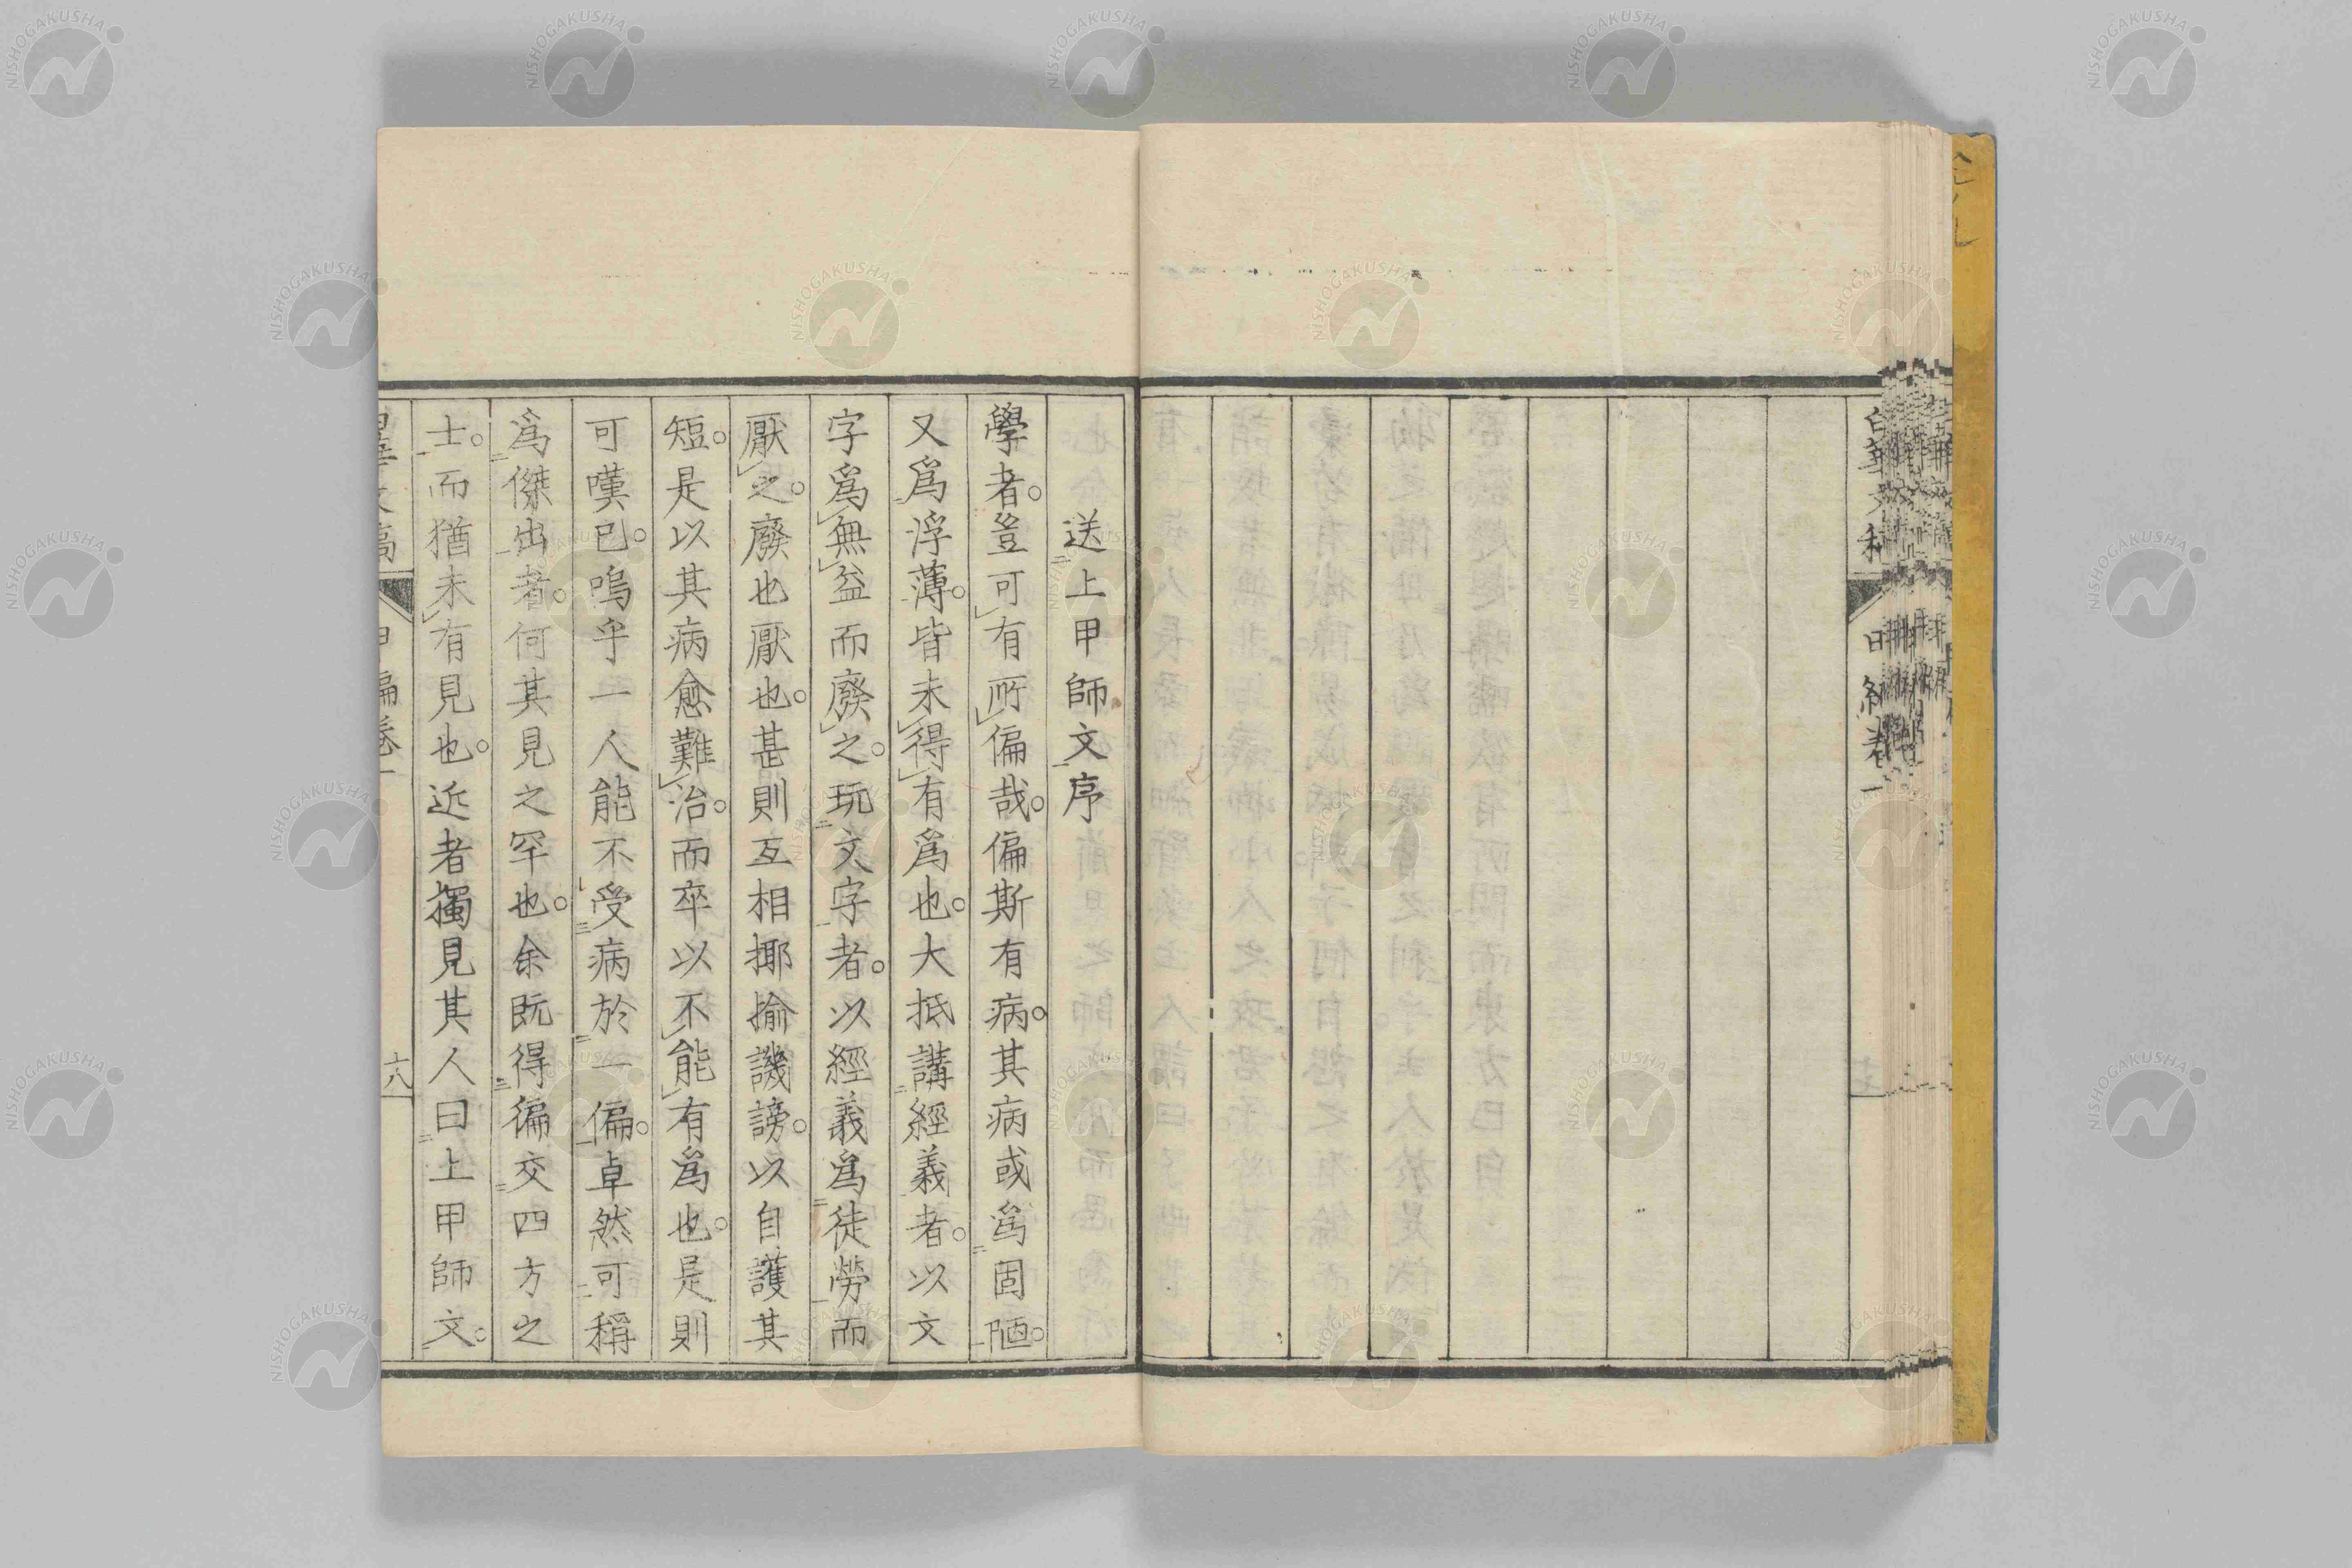 送上甲師文序
學者。豈可有所偏哉。偏斯有病。其病或爲固陋。
又爲浮薄。皆未得有爲也。大抵講經義者。以文
字爲無益而廢之。玩文字者。以經義爲徒勞而
厭之。廢也厭也。甚則互相揶揄譏謗。以自護其
短。是以其病愈難治。而卒以不能有爲也。是則
可嘆已。嗚乎一人能不受病於一偏。卓然可稱
爲傑出者。何其見之罕也。余既得徧交四方之
士。而猶未有見也。近者獨見其人曰上甲師文。